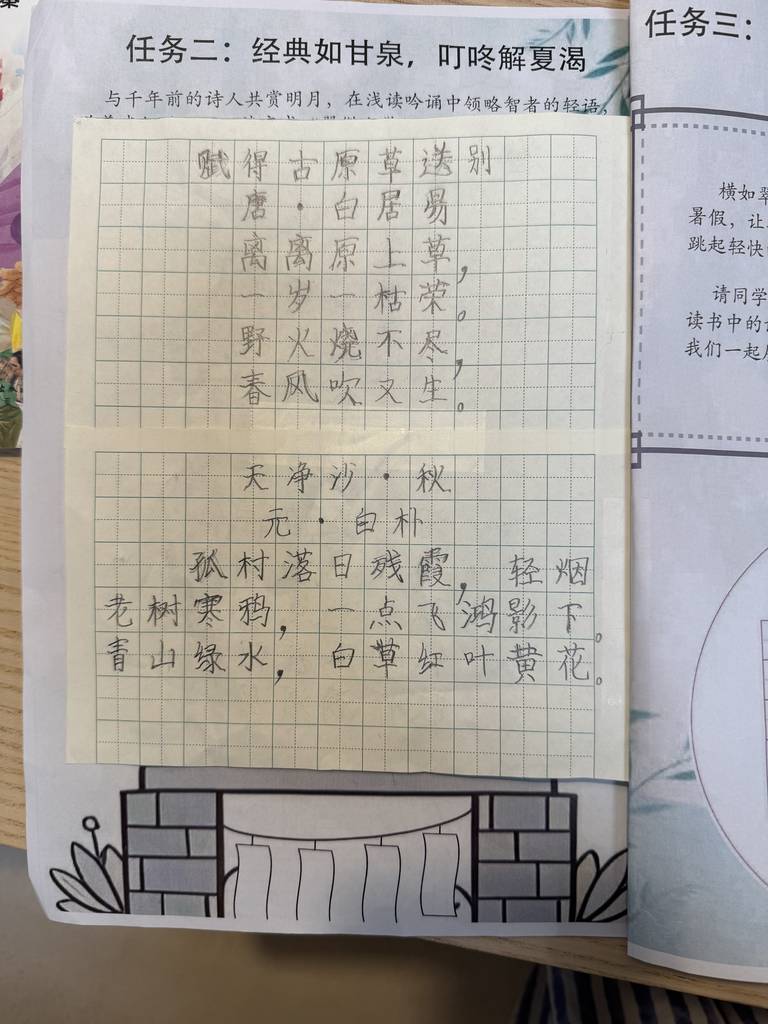 任务二：经典如甘泉，叮咚解夏渴
与千年前的诗人共赏明月，在浅读吟诵中领略智者的轻语，
赋得古原草送别
唐·白居易
离离原上草，
一岁一枯荣。
野火烧不尽，
春风吹又生。
天净沙·秋
元·白朴
孤村落日残霞，轻烟
老树寒鸦，一点飞鸿影下。
青山绿水，白草红叶黄花。
任务三：
横如翠
暑假，让
跳起轻快
请同学
读书中的
我们一起